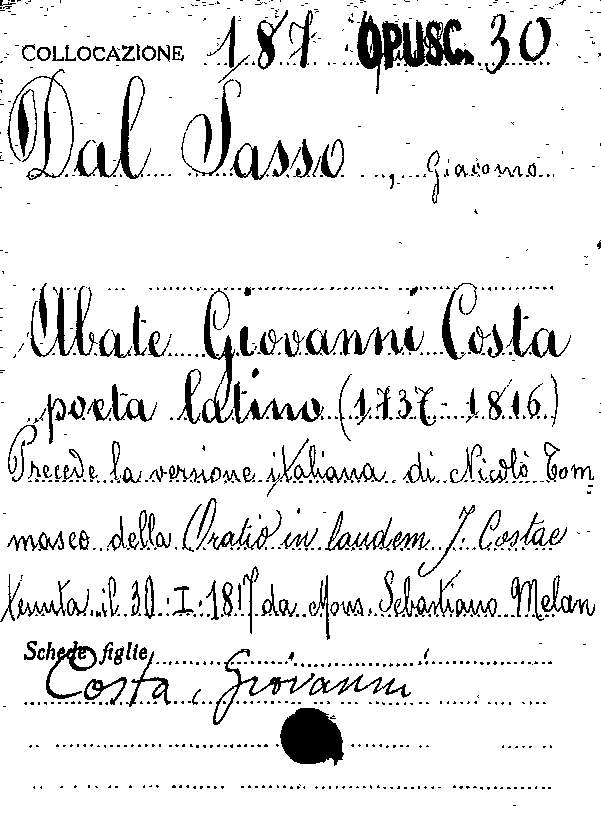 COLLOCAZIONE 187 OPUSC. 30
Dal Sasso, Giacomo
Abate Giovanni Costa
poeta latino (1737-1816)
Precede la versione italiana di Nicolò Tom=
maseo della Oratio in laudem J. Costae
tenuta il 30.I.1817 da Mons. Sebastiano Melan
Schede figlie
Costa, Giovanni